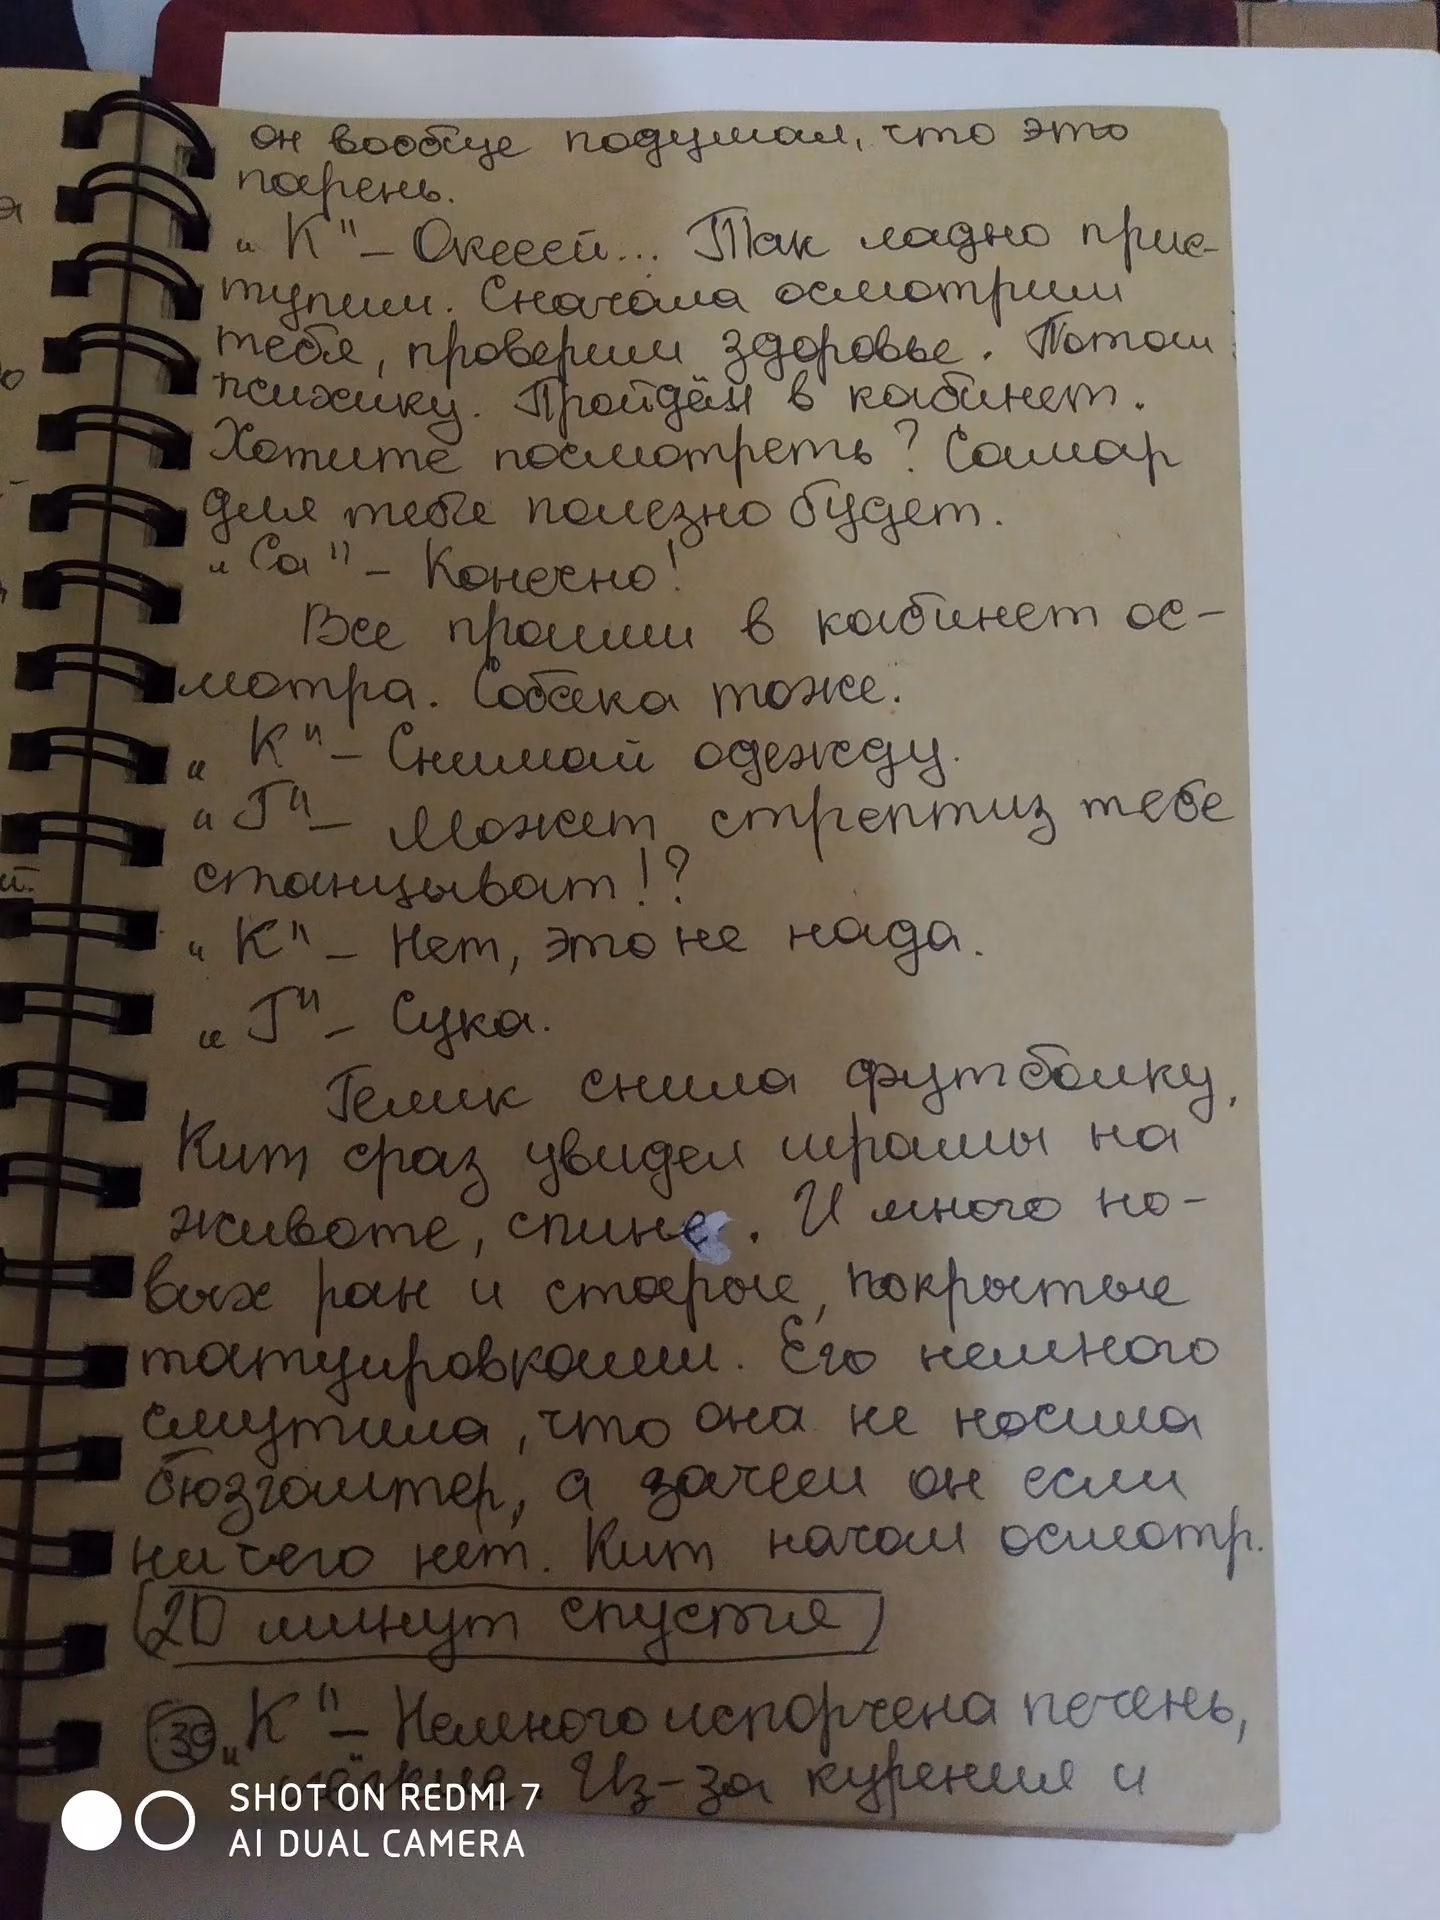 он вообще подумал, что это
парень.
„К" – Океей... Так ладно прис-
тупим. Сначала осмотрим
тебя, проверим здоровье. Потом
психику. Пройдём в кабинет.
Хотите посмотреть? Самар
для тебе полезно будет.
„Са" – Конечно!
Все прошли в кабинет ос-
мотра. Собака тоже.
„К" – Снимай одежду.
„Г" – Может стрептиз тебе
станцыват!?
„К" – Нет, это не нада.
„Г" – Сука.
Гелик снила футболку,
Кит сраз увидел шрамы на
животе, спине. И много но-
вых ран и старые, покрытые
татуировками. Его немного
смутила, что она не носила
бюзгалтер, а зачем он если
ничего нет. Кит начал осмотр.
20 минут спустя
39 „К" – Немного испорчена печень,
лёгкие. Из-за курения и
SHOT ON REDMI 7
AI DUAL CAMERA